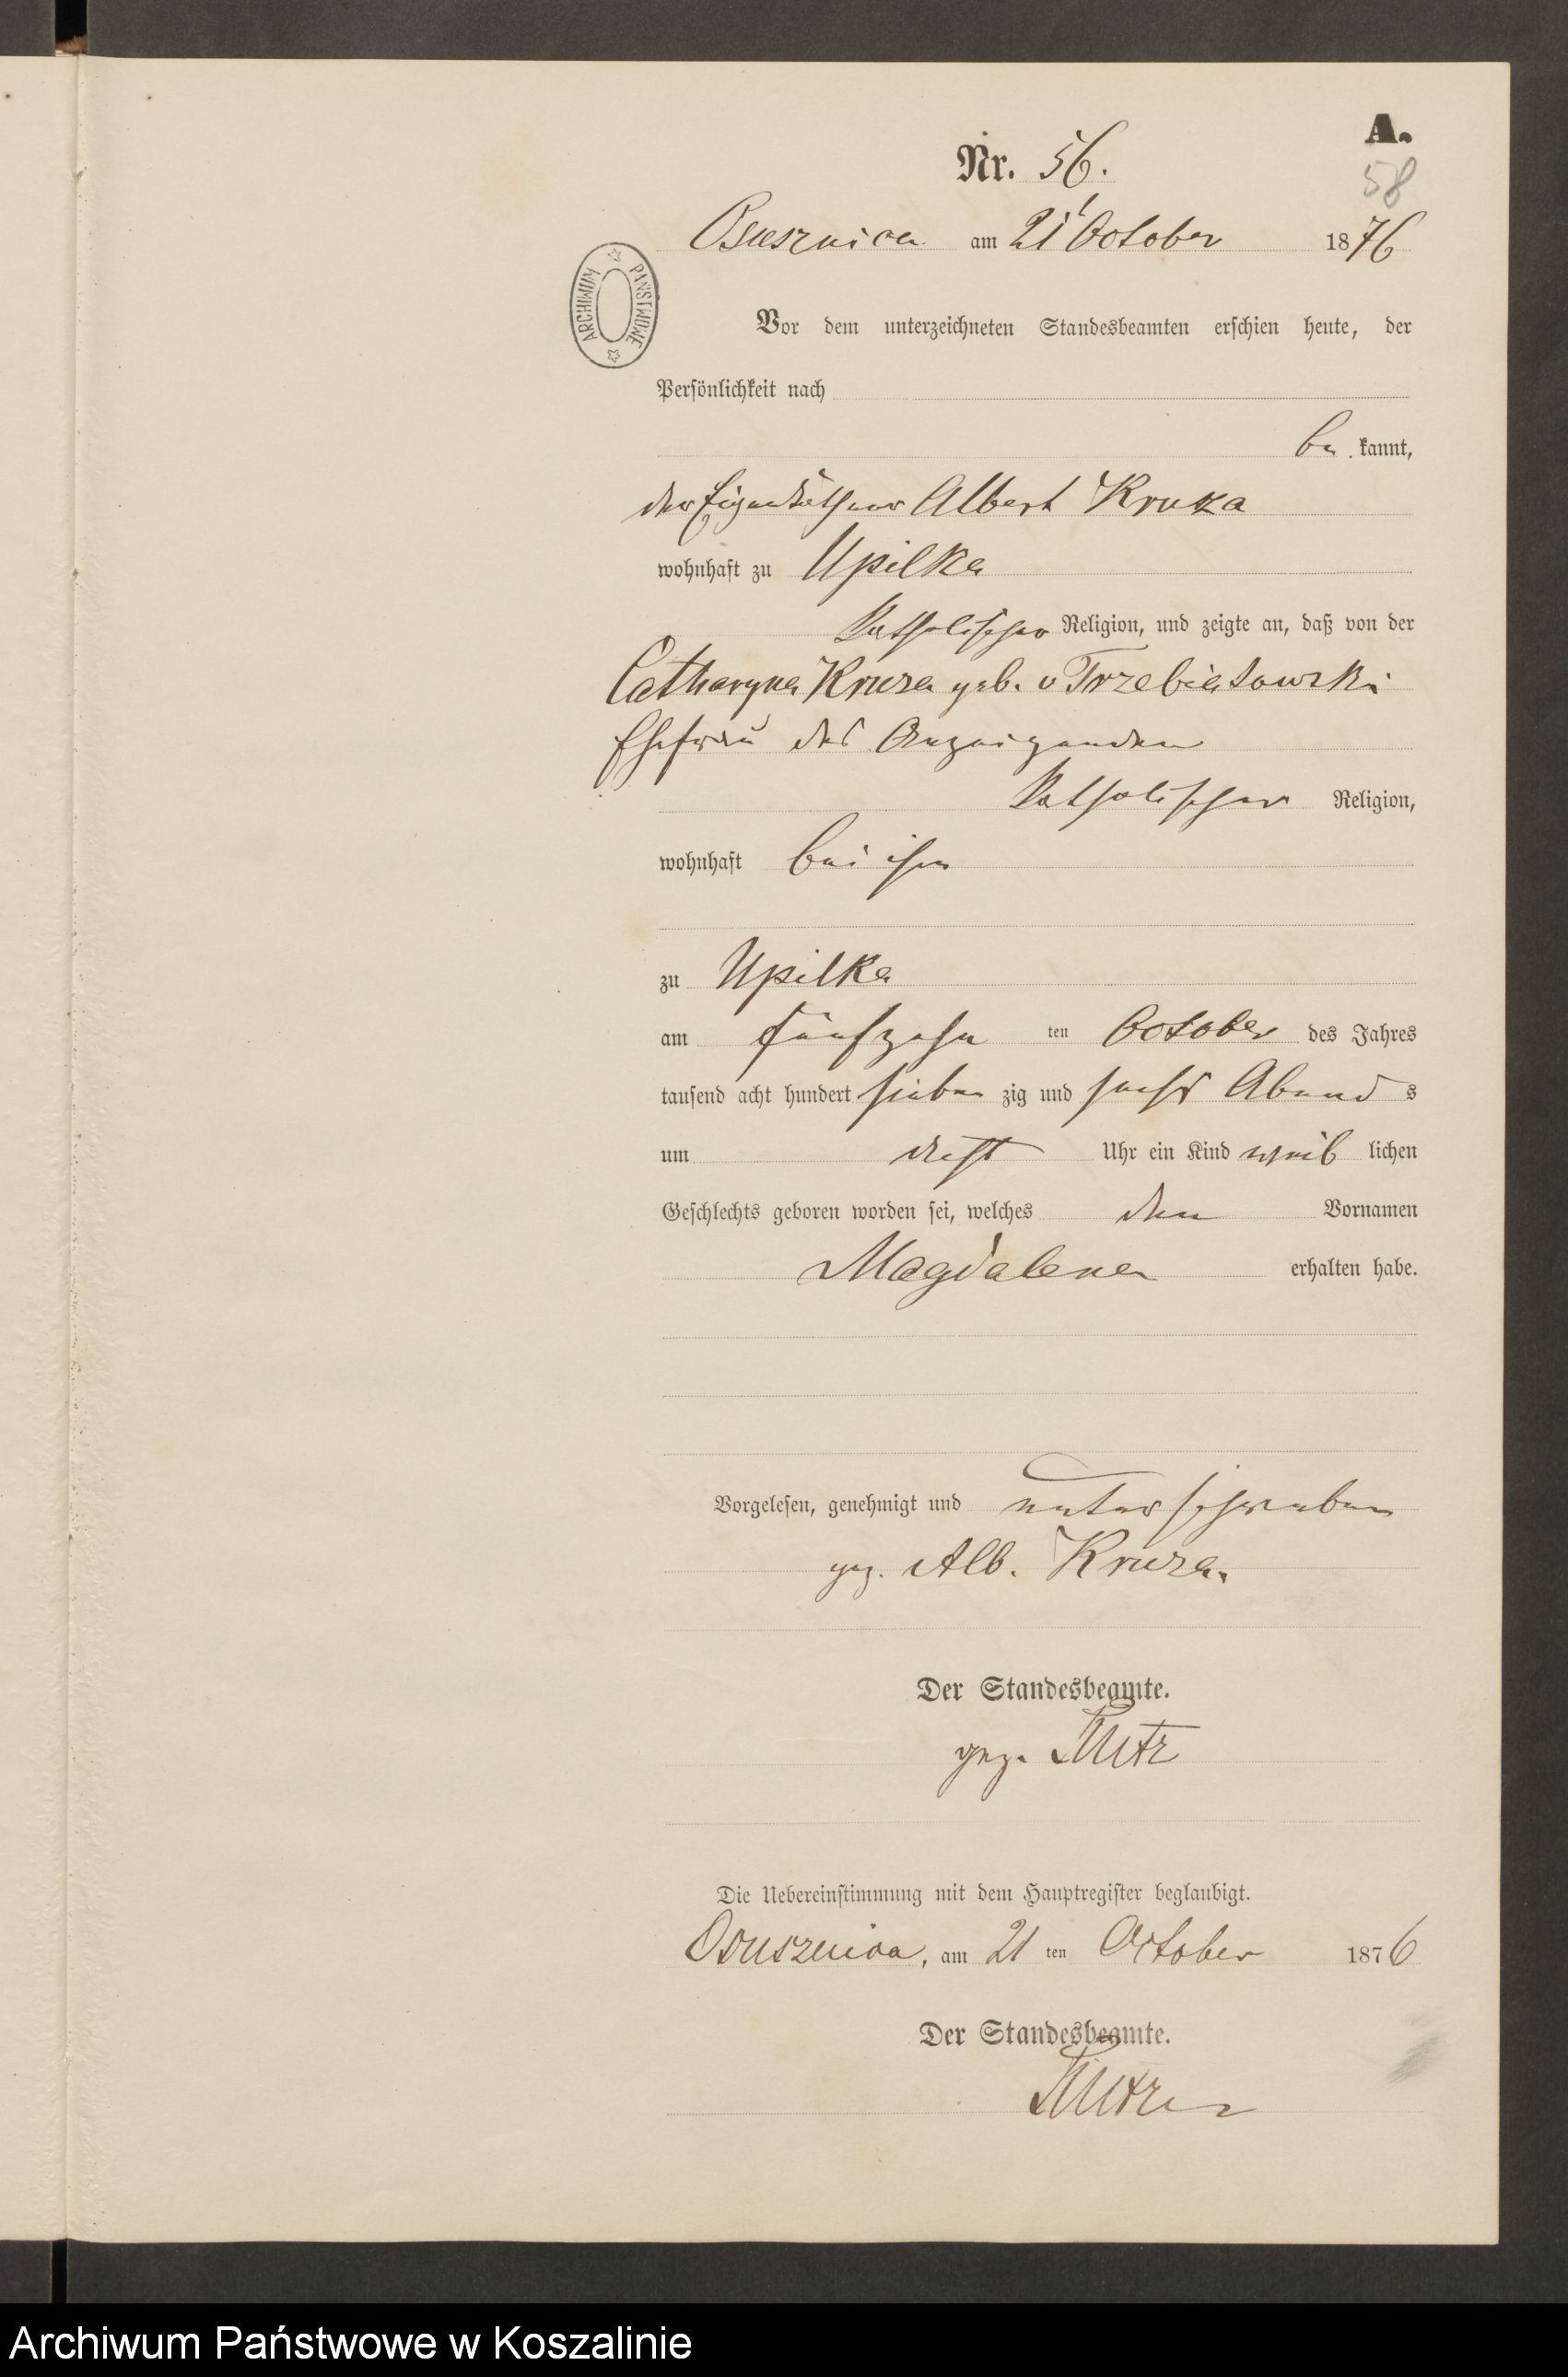 A.
Nr. 56.
58
Osusznica am 21 October 1876
ARCHIWUM PAŃSTWOWE
Vor dem unterzeichneten Standesbeamten erschien heute, der
Persönlichkeit nach
be kannt,
der Eigenthümer Albert Kruza
wohnhaft zu Upilka
katholischer Religion, und zeigte an, daß von der
Catharyna Kruza geb. v Trzebiatowski
Ehefrau des Anzeigenden
katholischer Religion,
wohnhaft bei ihm
zu Upilka
am fünfzehn ten October des Jahres
tausend acht hundert sieben zig und sechs Abend s
um Uhr ein Kind weib lichen
Geschlechts geboren worden sei, welches den Vornamen
Magdalena erhalten habe.
Vorgelesen, genehmigt und unterschrieben
gez. Alb. Kruza.
Der Standesbeamte.
gez.
Die Uebereinstimmung mit dem Hauptregister beglaubigt.
Osusznica, am 21 ten October 1876
Der Standesbeamte.
Archiwum Państwowe w Koszalinie